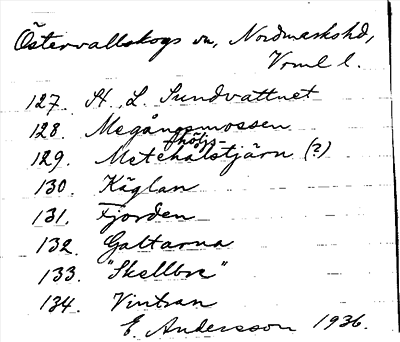 Östervallskogs sn, Nordmarkshd,
Vrml l.
127. St. L. Sundvattnet
128. Megångsmossen
höljs-
129. Metehalstjärn (?)
130. Käglan
131. Fjorden
132. Galtarna
133. "Skellbre"
134. Vintran
E. Andersson 1936.